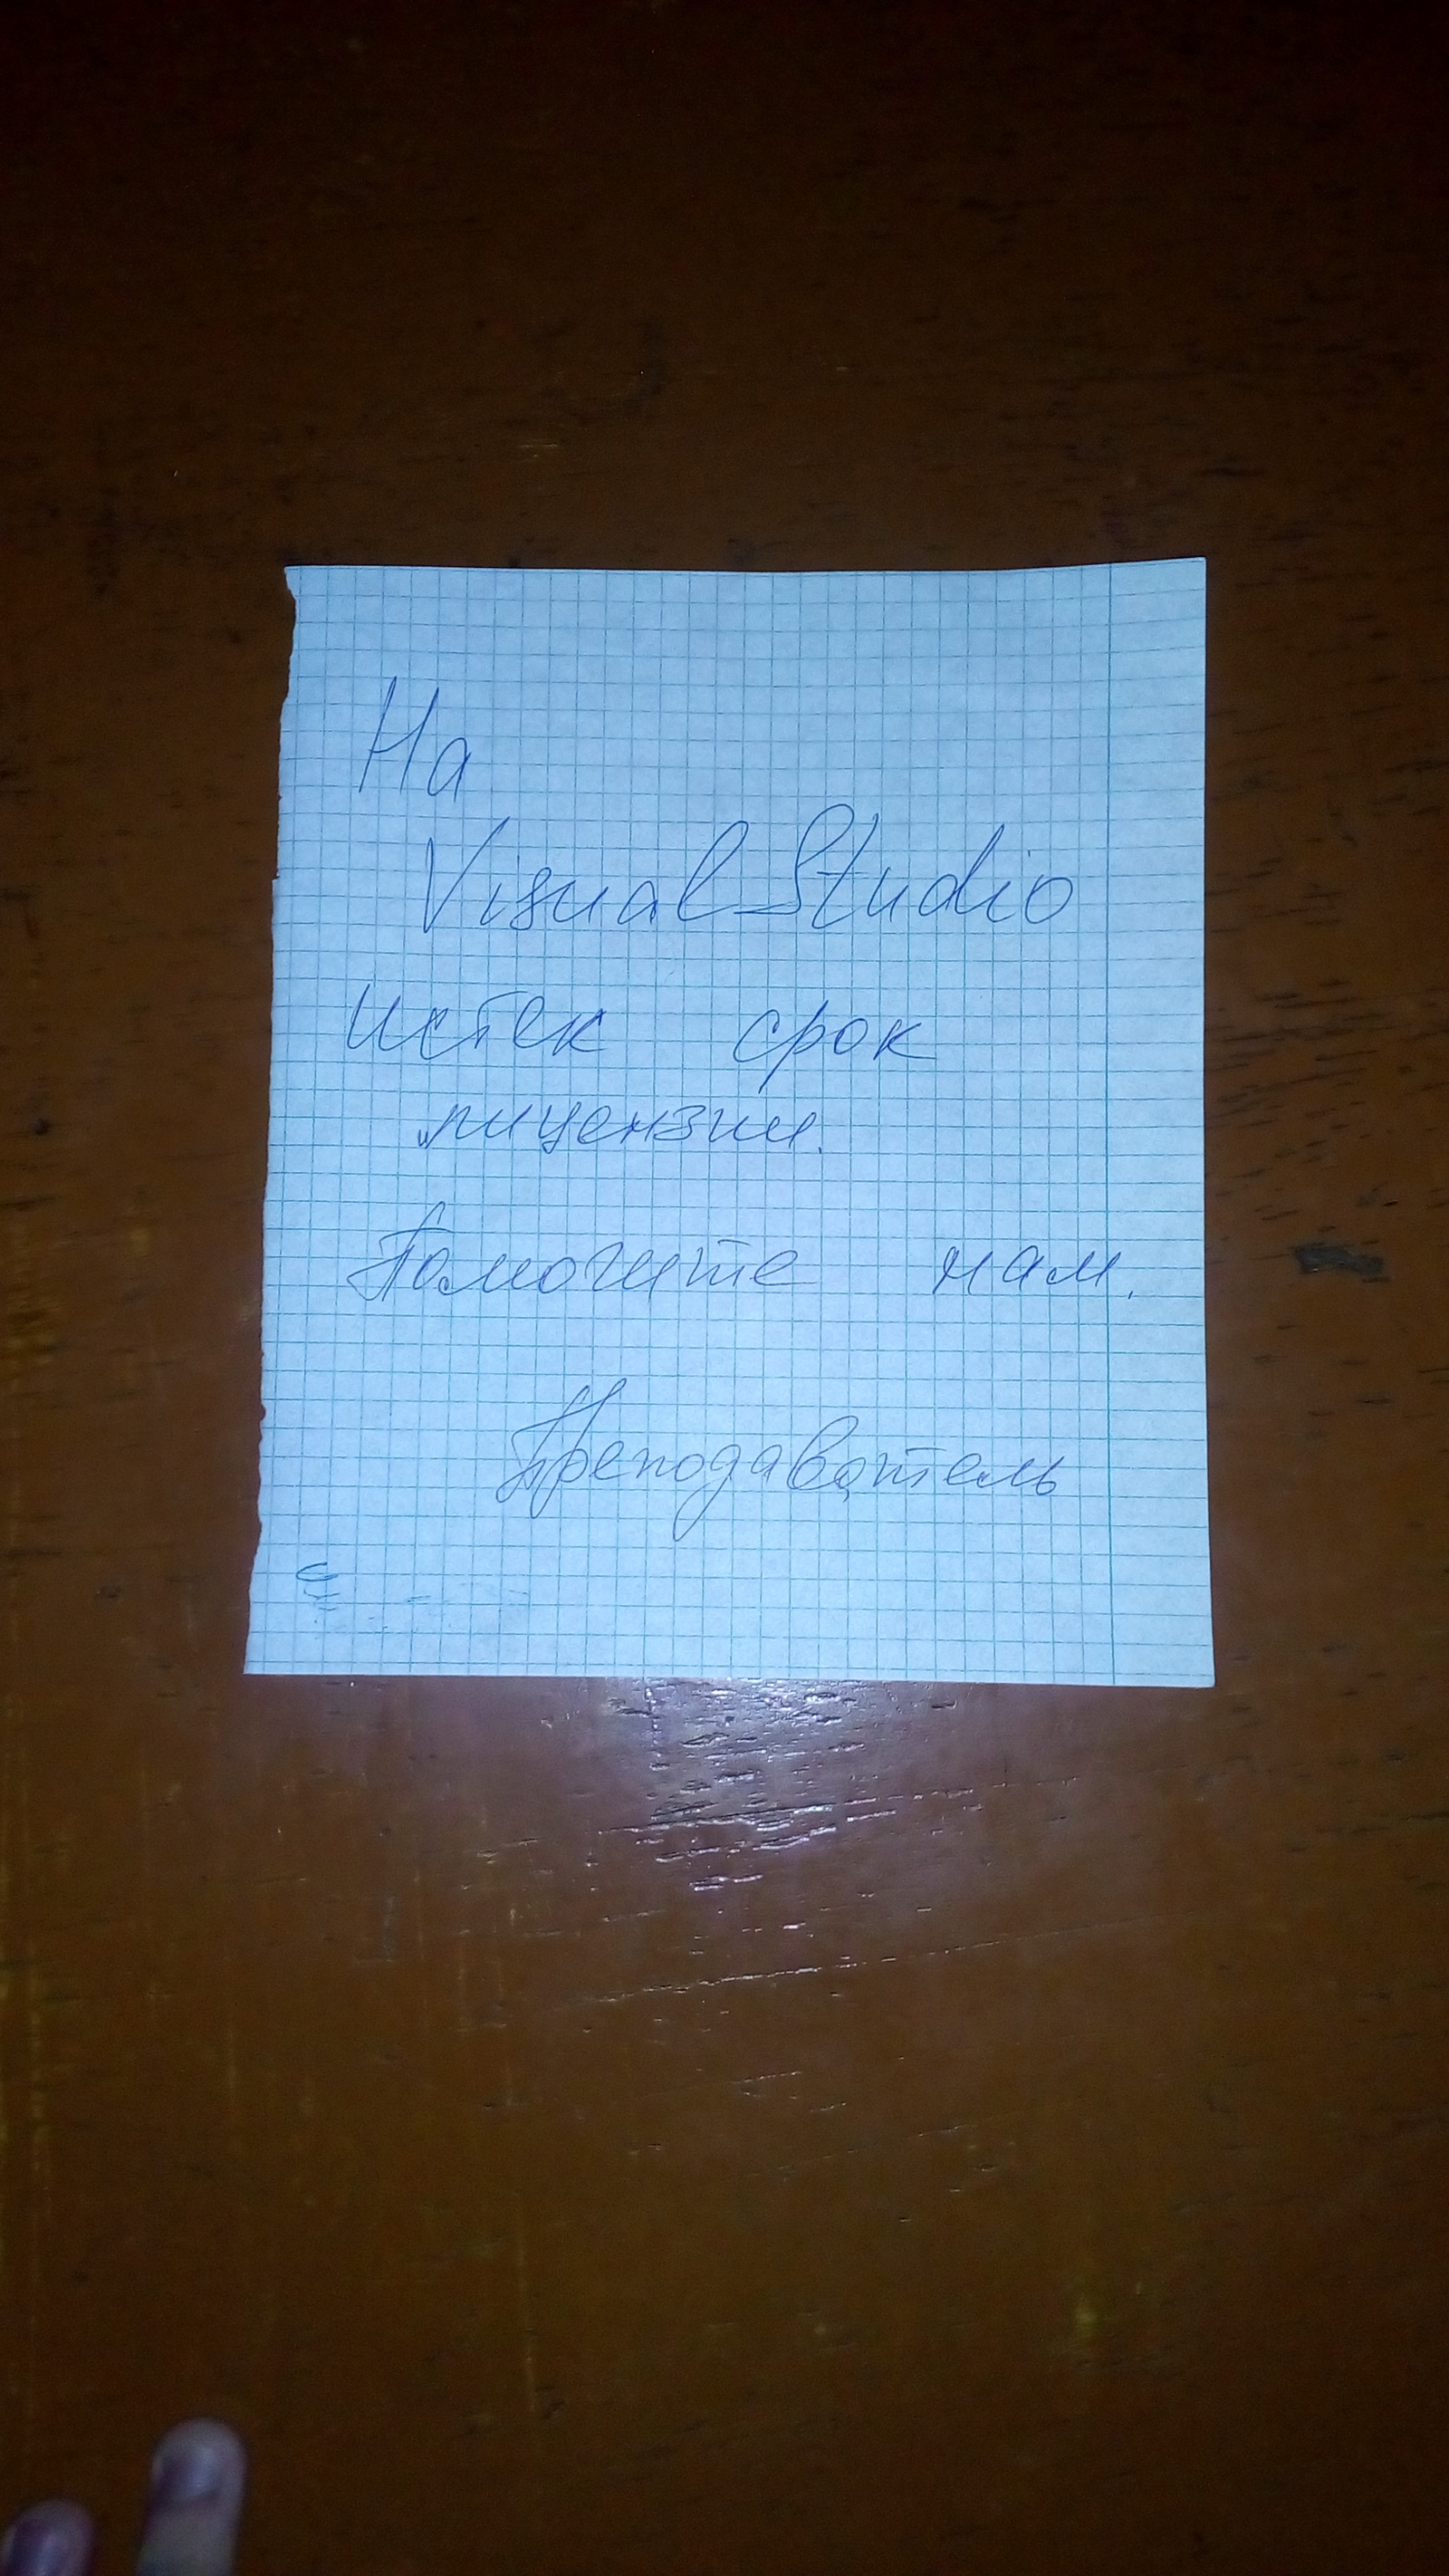 На
Visual Studio
истек срок
лицензии.
Помогите нам.
Преподаватель